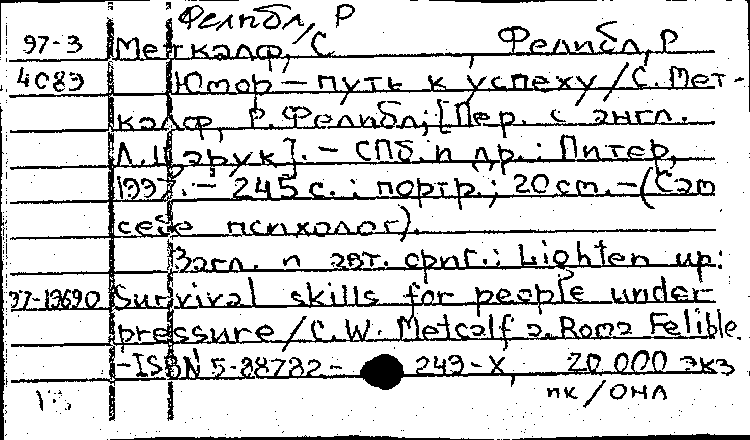 Фелибл, Р
97-3 Меткалф, С Фелибл, Р
4089 Юмор — путь к успеху / С. Мет-
калф, Р. Фелибл; [Пер. с англ.
Л. Царук]. - СПб. и др.: Питер,
1997. - 245 с. : портр.; 20 cm. - (Сам
себе психолог).
Загл. и авт. ориг.: Lighten up:
97-19690 Survival skills for people under
pressure / C.W. Metcalf a. Roma Felible.
- ISBN 5-88782- 249-X, 20 000 экз
пк / ОНЛ